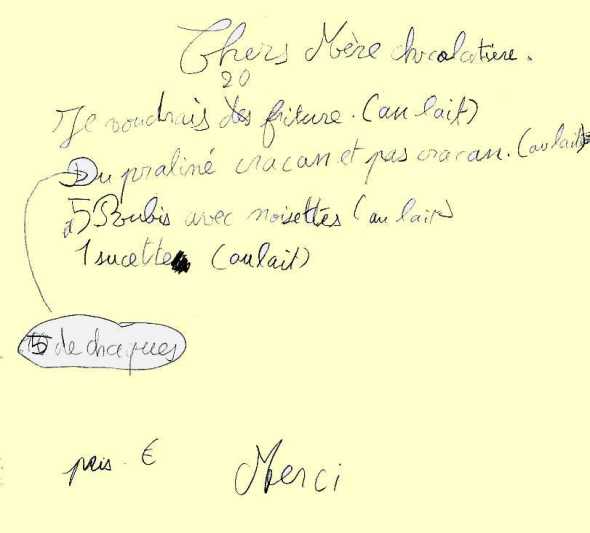 Chers Mère chocolatière.
20
Je voudrais des friture. (au lait)
Du praliné cracan et pas cracan. (au lait)
5 Roubis avec noisettes (au lait)
1 sucette (au lait)
de chaques
pris. €
Merci